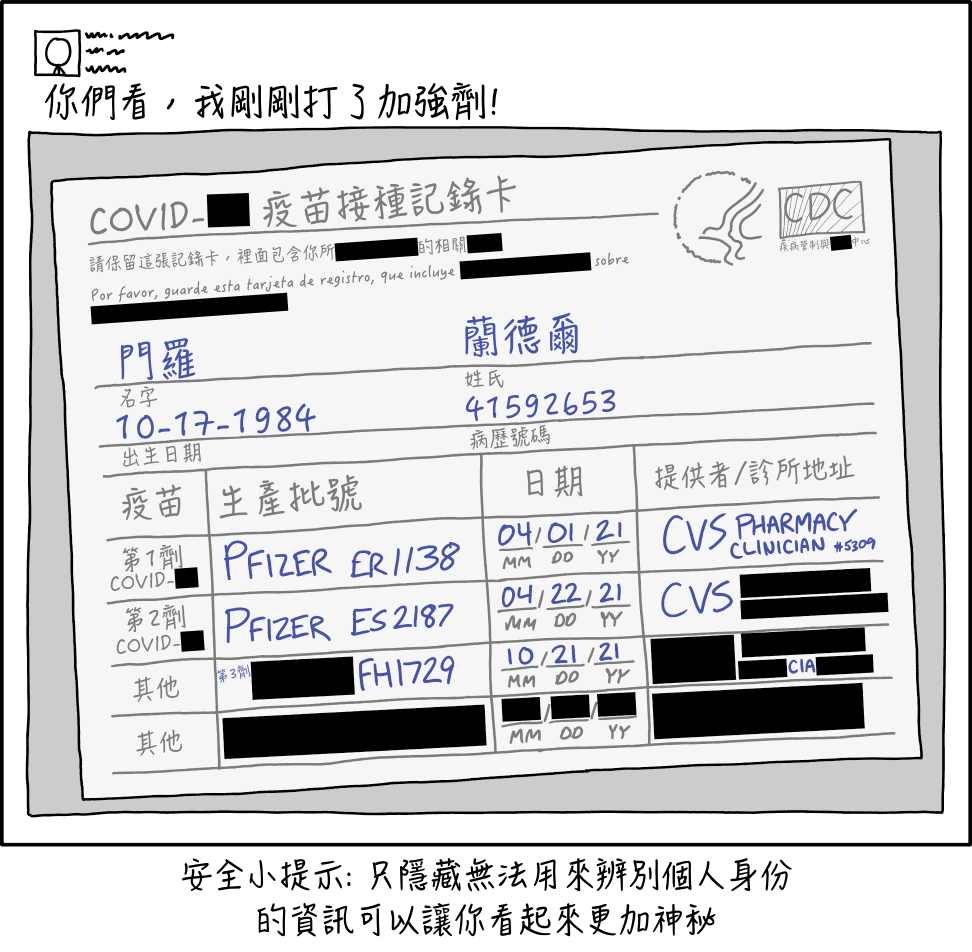 你們看，我剛剛打了加強劑!
COVID- 疫苗接種記錄卡
CDC
疾病管制與 中心
請保留這張記錄卡，裡面包含你所 的相關
Por favor, guarde esta tarjeta de registro, que incluye sobre
門羅 蘭德爾
名字 姓氏
10-17-1984 41592653
出生日期 病歷號碼
疫苗 生產批號 日期 提供者/診所地址
第1劑 COVID- PFIZER ER1138 04/01/21 MM DD YY CVS PHARMACY CLINICIAN #5309
第2劑 COVID- PFIZER ES2187 04/22/21 MM DD YY CVS
其他 第3劑 FH1729 10/21/21 MM DD YY CIA
其他 / / MM DD YY
安全小提示: 只隱藏無法用來辨別個人身份
的資訊可以讓你看起來更加神秘